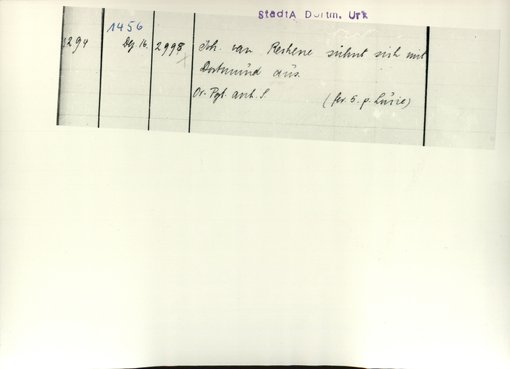 StadtA Dortm. Urk
1456
3294 Dez. 16. 2998 Joh. van Reshene sühnt sich mit
Dortmund aus.
Or. Pgt. anh. S. (fer. 5. p. Lucie)